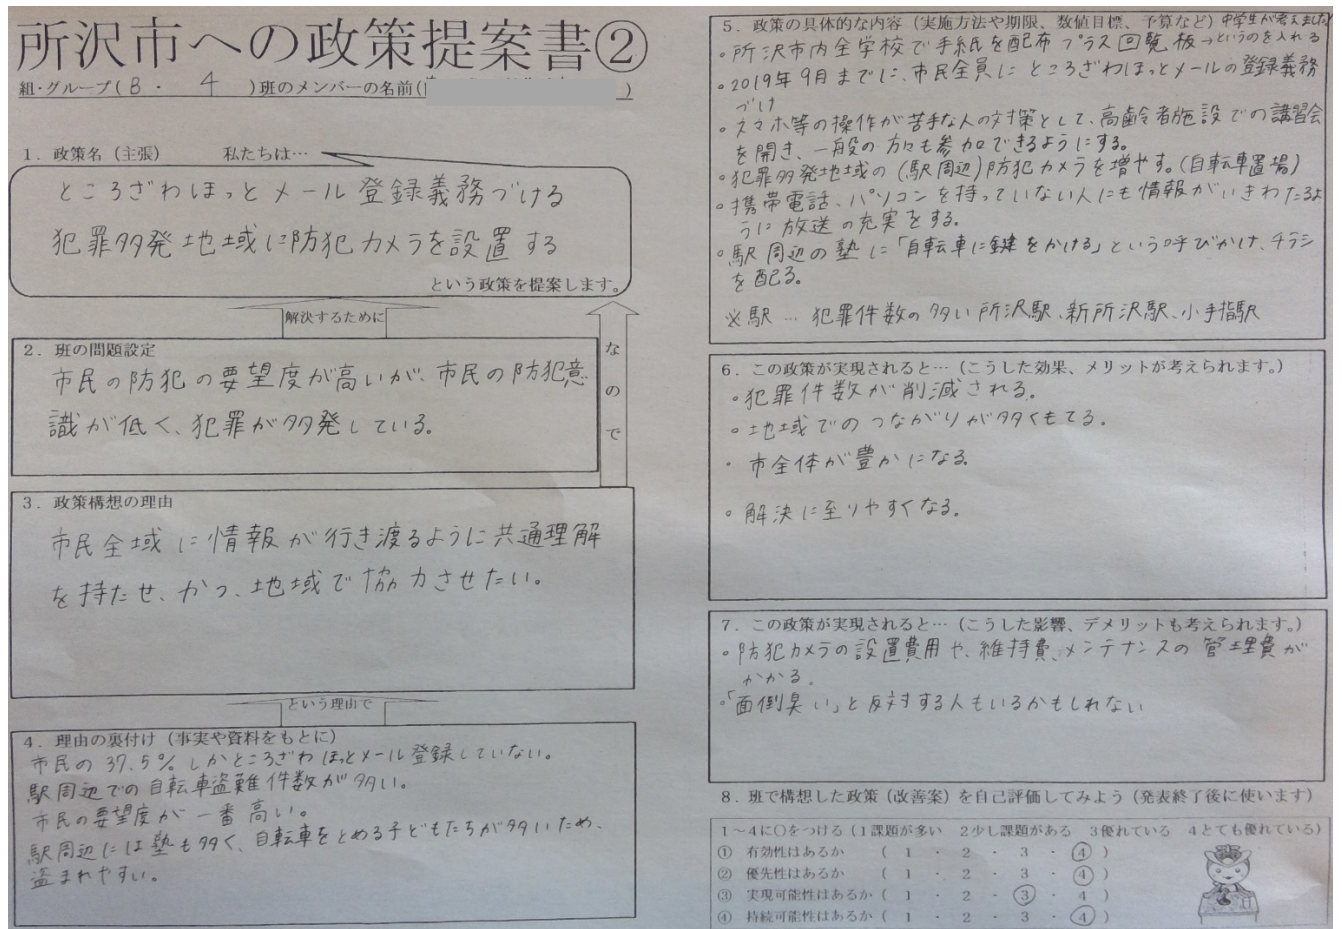 所沢市への政策提案書②
組・グループ( 8 ・ 4 )班のメンバーの名前( )
1．政策名（主張） 私たちは…
ところざわほっとメール登録義務づける
犯罪多発地域に防犯カメラを設置する
という政策を提案します。
解決するために
なので
2．班の問題設定
市民の防犯の要望度が高いが、市民の防犯意
識が低く、犯罪が多発している。
3．政策構想の理由
市民全域に情報が行き渡るように共通理解
を持たせ、かつ、地域で協力させたい。
という理由で
4．理由の裏付け（事実や資料をもとに）
市民の37.5％しかところざわほっとメール登録していない。
駅周辺での自転車盗難件数が多い。
市民の要望度が一番高い。
駅周辺には塾も多く、自転車をとめる子どもたちが多いため、
盗まれやすい。
5．政策の具体的な内容（実施方法や期限、数値目標、予算など）中学生が考えました
・所沢市内全学校で手紙を配布 プラス 回覧板→というのを入れる
・2019年9月までに、市民全員にところざわほっとメールの登録義務
づけ
・スマホ等の操作が苦手な人の対策として、高齢者施設での講習会
を開き、一般の方々も参加できるようにする。
・犯罪多発地域の(駅周辺)防犯カメラを増やす。(自転車置場)
・携帯電話、パソコンを持っていない人にも情報がいきわたるよ
うに放送の充実をする。
・駅周辺の塾に「自転車に鍵をかける」という呼びかけ、チラシ
を配る。
※駅…犯罪件数の多い所沢駅、新所沢駅、小手指駅
6．この政策が実現されると…（こうした効果、メリットが考えられます。）
・犯罪件数が削減される。
・地域でのつながりが多くもてる。
・市全体が豊かになる。
・解決に至りやすくなる。
7．この政策が実現されると…（こうした影響、デメリットも考えられます。）
・防犯カメラの設置費用や、維持費、メンテナンスの管理費が
かかる。
・「面倒臭い」と反対する人もいるかもしれない
8．班で構想した政策（改善案）を自己評価してみよう（発表終了後に使います）
1～4に○をつける（1課題が多い 2少し課題がある 3優れている 4とても優れている）
① 有効性はあるか （ 1 ・ 2 ・ 3 ・ ④ ）
② 優先性はあるか （ 1 ・ 2 ・ 3 ・ ④ ）
③ 実現可能性はあるか（ 1 ・ 2 ・ ③ ・ 4 ）
④ 持続可能性はあるか（ 1 ・ 2 ・ 3 ・ ④ ）